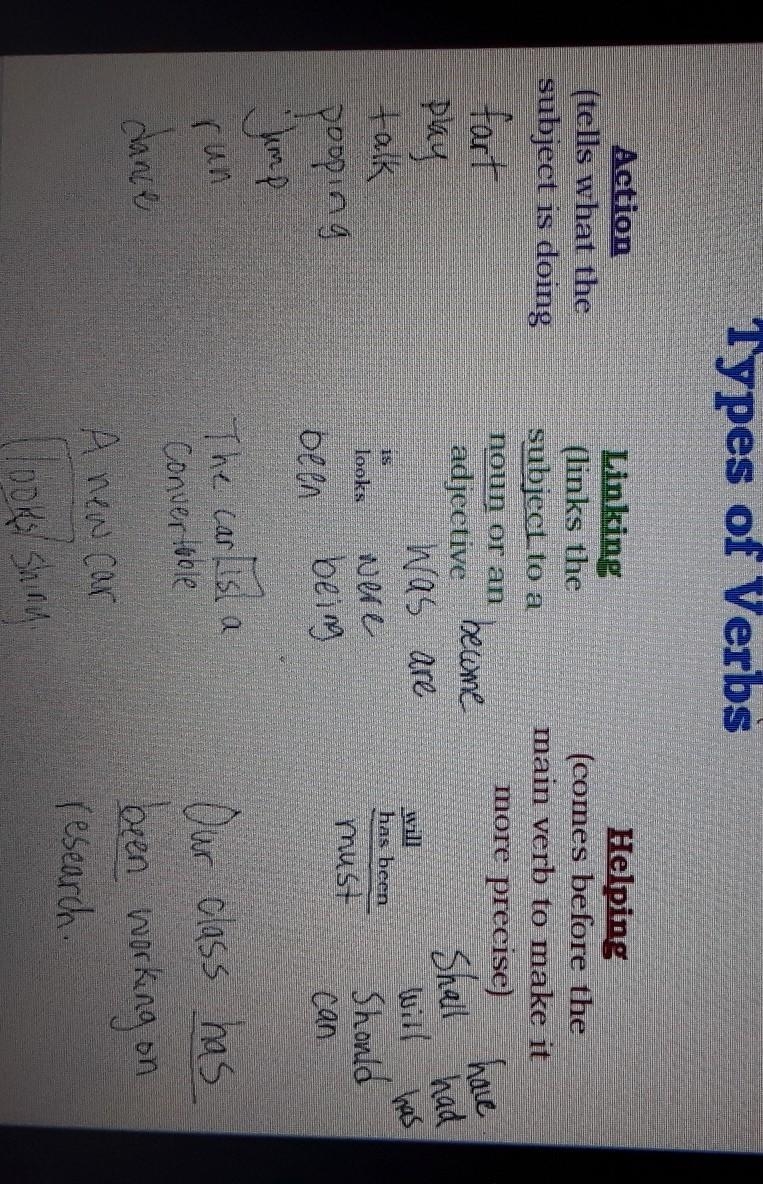 Types of Verbs
Action
(tells what the
subject is doing
fart
play
talk
pooping
jump
run
dance
Linking
(links the
subject to a
noun or an
adjective
become
was are
is
looks
were
been being
The car is a
convertable
A new car
looks shiny
Helping
(comes before the
main verb to make it
more precise)
have
shall had
will
will has
has been
must
should
can
Our class has
been working on
research.